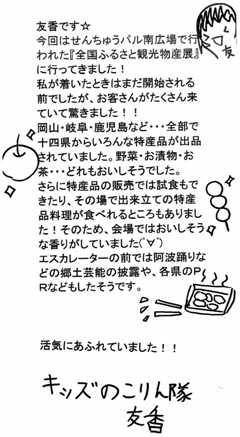 友香です☆
今回はせんちゅうパル南広場で行
われた『全国ふるさと観光物産展』
に行ってきました！
私が着いたときはまだ開始される
前でしたが、お客さんがたくさん来
ていて驚きました！！
岡山・岐阜・鹿児島など・・・全部で
十四県からいろんな特産品が出品
されていました。野菜・お漬物・お
茶・・・どれもおいしそうでした。
さらに特産品の販売では試食もで
きたり、その場で出来立ての特産
品料理が食べれるところもありまし
た！そのため、会場ではおいしそう
な香りがしていました(´∀`)
エスカレーターの前では阿波踊りな
どの郷土芸能の披露や、各県のＰ
Ｒなどもしたそうです。
活気にあふれていました！！
キッズのこりん隊
友香
友